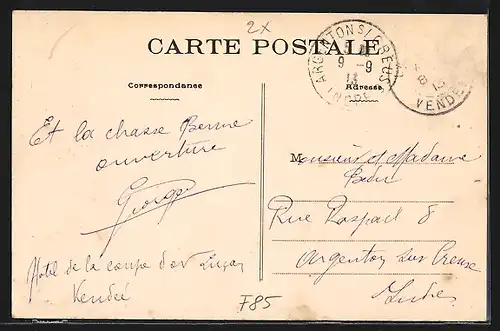 2x
CARTE POSTALE
ARGENTON S/ CREUSE
9 -9
13
INDRE
VENDÉE
Correspondance
Adresse
Et la chasse Bonne
ouverture
George
Hotel de la coupe d'or Luçon
Vendée
Monsieur et Madame
Rue Raspail 8
Argenton sur Creuse
Indre
F85